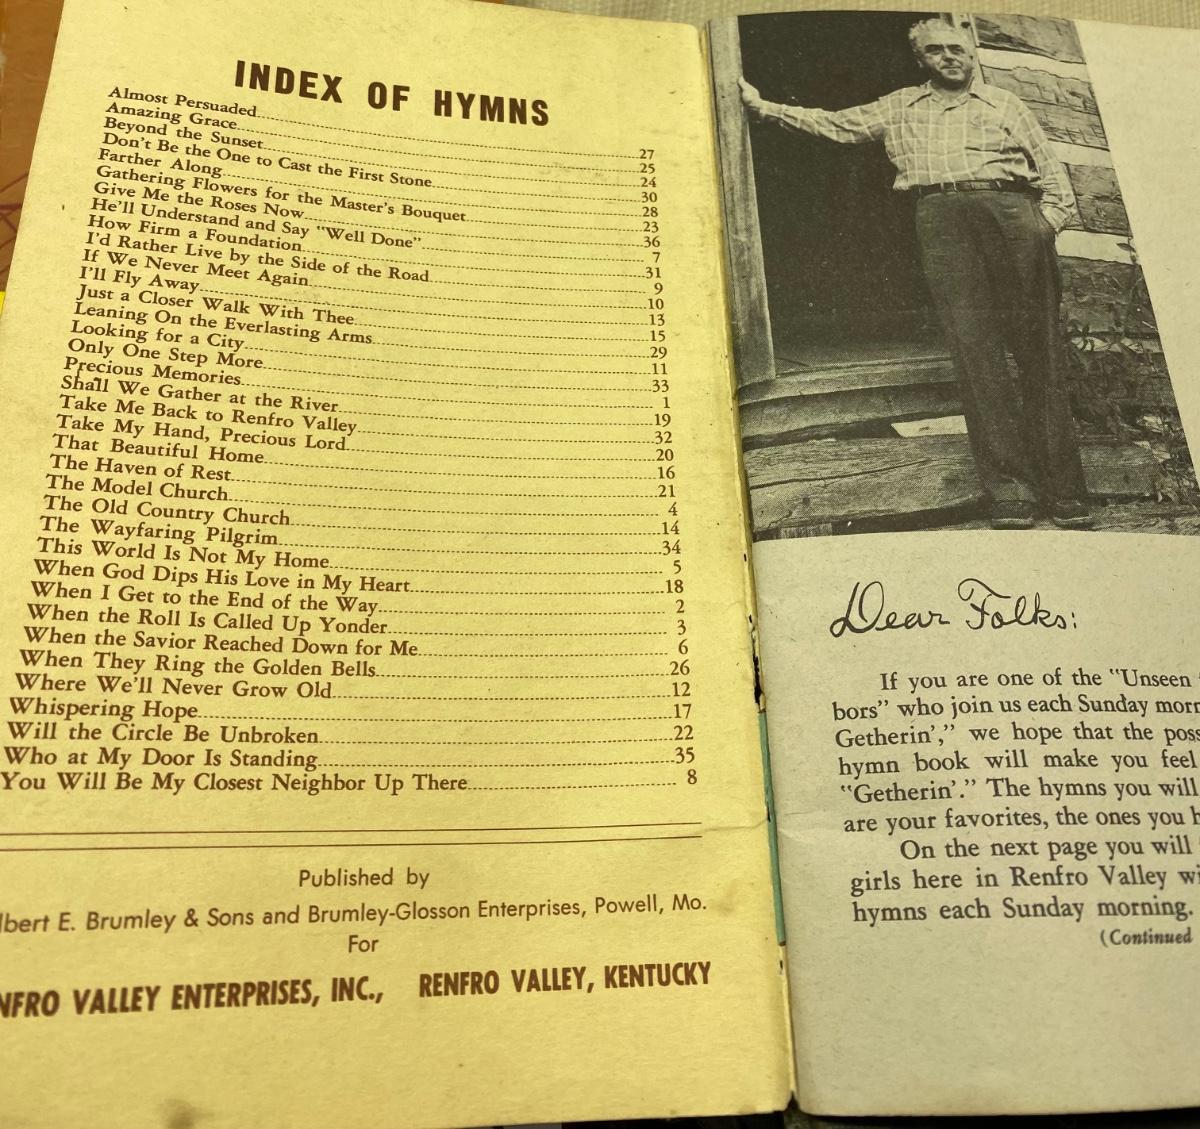 INDEX OF HYMNS
Almost Persuaded 27
Amazing Grace 25
Beyond the Sunset 24
Don't Be the One to Cast the First Stone 30
Farther Along 28
Gathering Flowers for the Master's Bouquet 23
Give Me the Roses Now 36
He'll Understand and Say "Well Done" 7
How Firm a Foundation 31
I'd Rather Live by the Side of the Road 9
If We Never Meet Again 10
I'll Fly Away 13
Just a Closer Walk With Thee 15
Leaning On the Everlasting Arms 29
Looking for a City 11
Only One Step More 33
Precious Memories 1
Shall We Gather at the River 19
Take Me Back to Renfro Valley 32
Take My Hand, Precious Lord 20
That Beautiful Home 16
The Haven of Rest 21
The Model Church 4
The Old Country Church 14
The Wayfaring Pilgrim 34
This World Is Not My Home 5
When God Dips His Love in My Heart 18
When I Get to the End of the Way 2
When the Roll Is Called Up Yonder 3
When the Savior Reached Down for Me 6
When They Ring the Golden Bells 26
Where We'll Never Grow Old 12
Whispering Hope 17
Will the Circle Be Unbroken 22
Who at My Door Is Standing 35
You Will Be My Closest Neighbor Up There 8
Published by
lbert E. Brumley & Sons and Brumley-Glosson Enterprises, Powell, Mo.
For
NFRO VALLEY ENTERPRISES, INC., RENFRO VALLEY, KENTUCKY
Dear Folks:
If you are one of the "Unseen
bors" who join us each Sunday morn
Getherin'," we hope that the poss
hymn book will make you feel
"Getherin'." The hymns you will
are your favorites, the ones you h
On the next page you will
girls here in Renfro Valley wi
hymns each Sunday morning.
(Continued